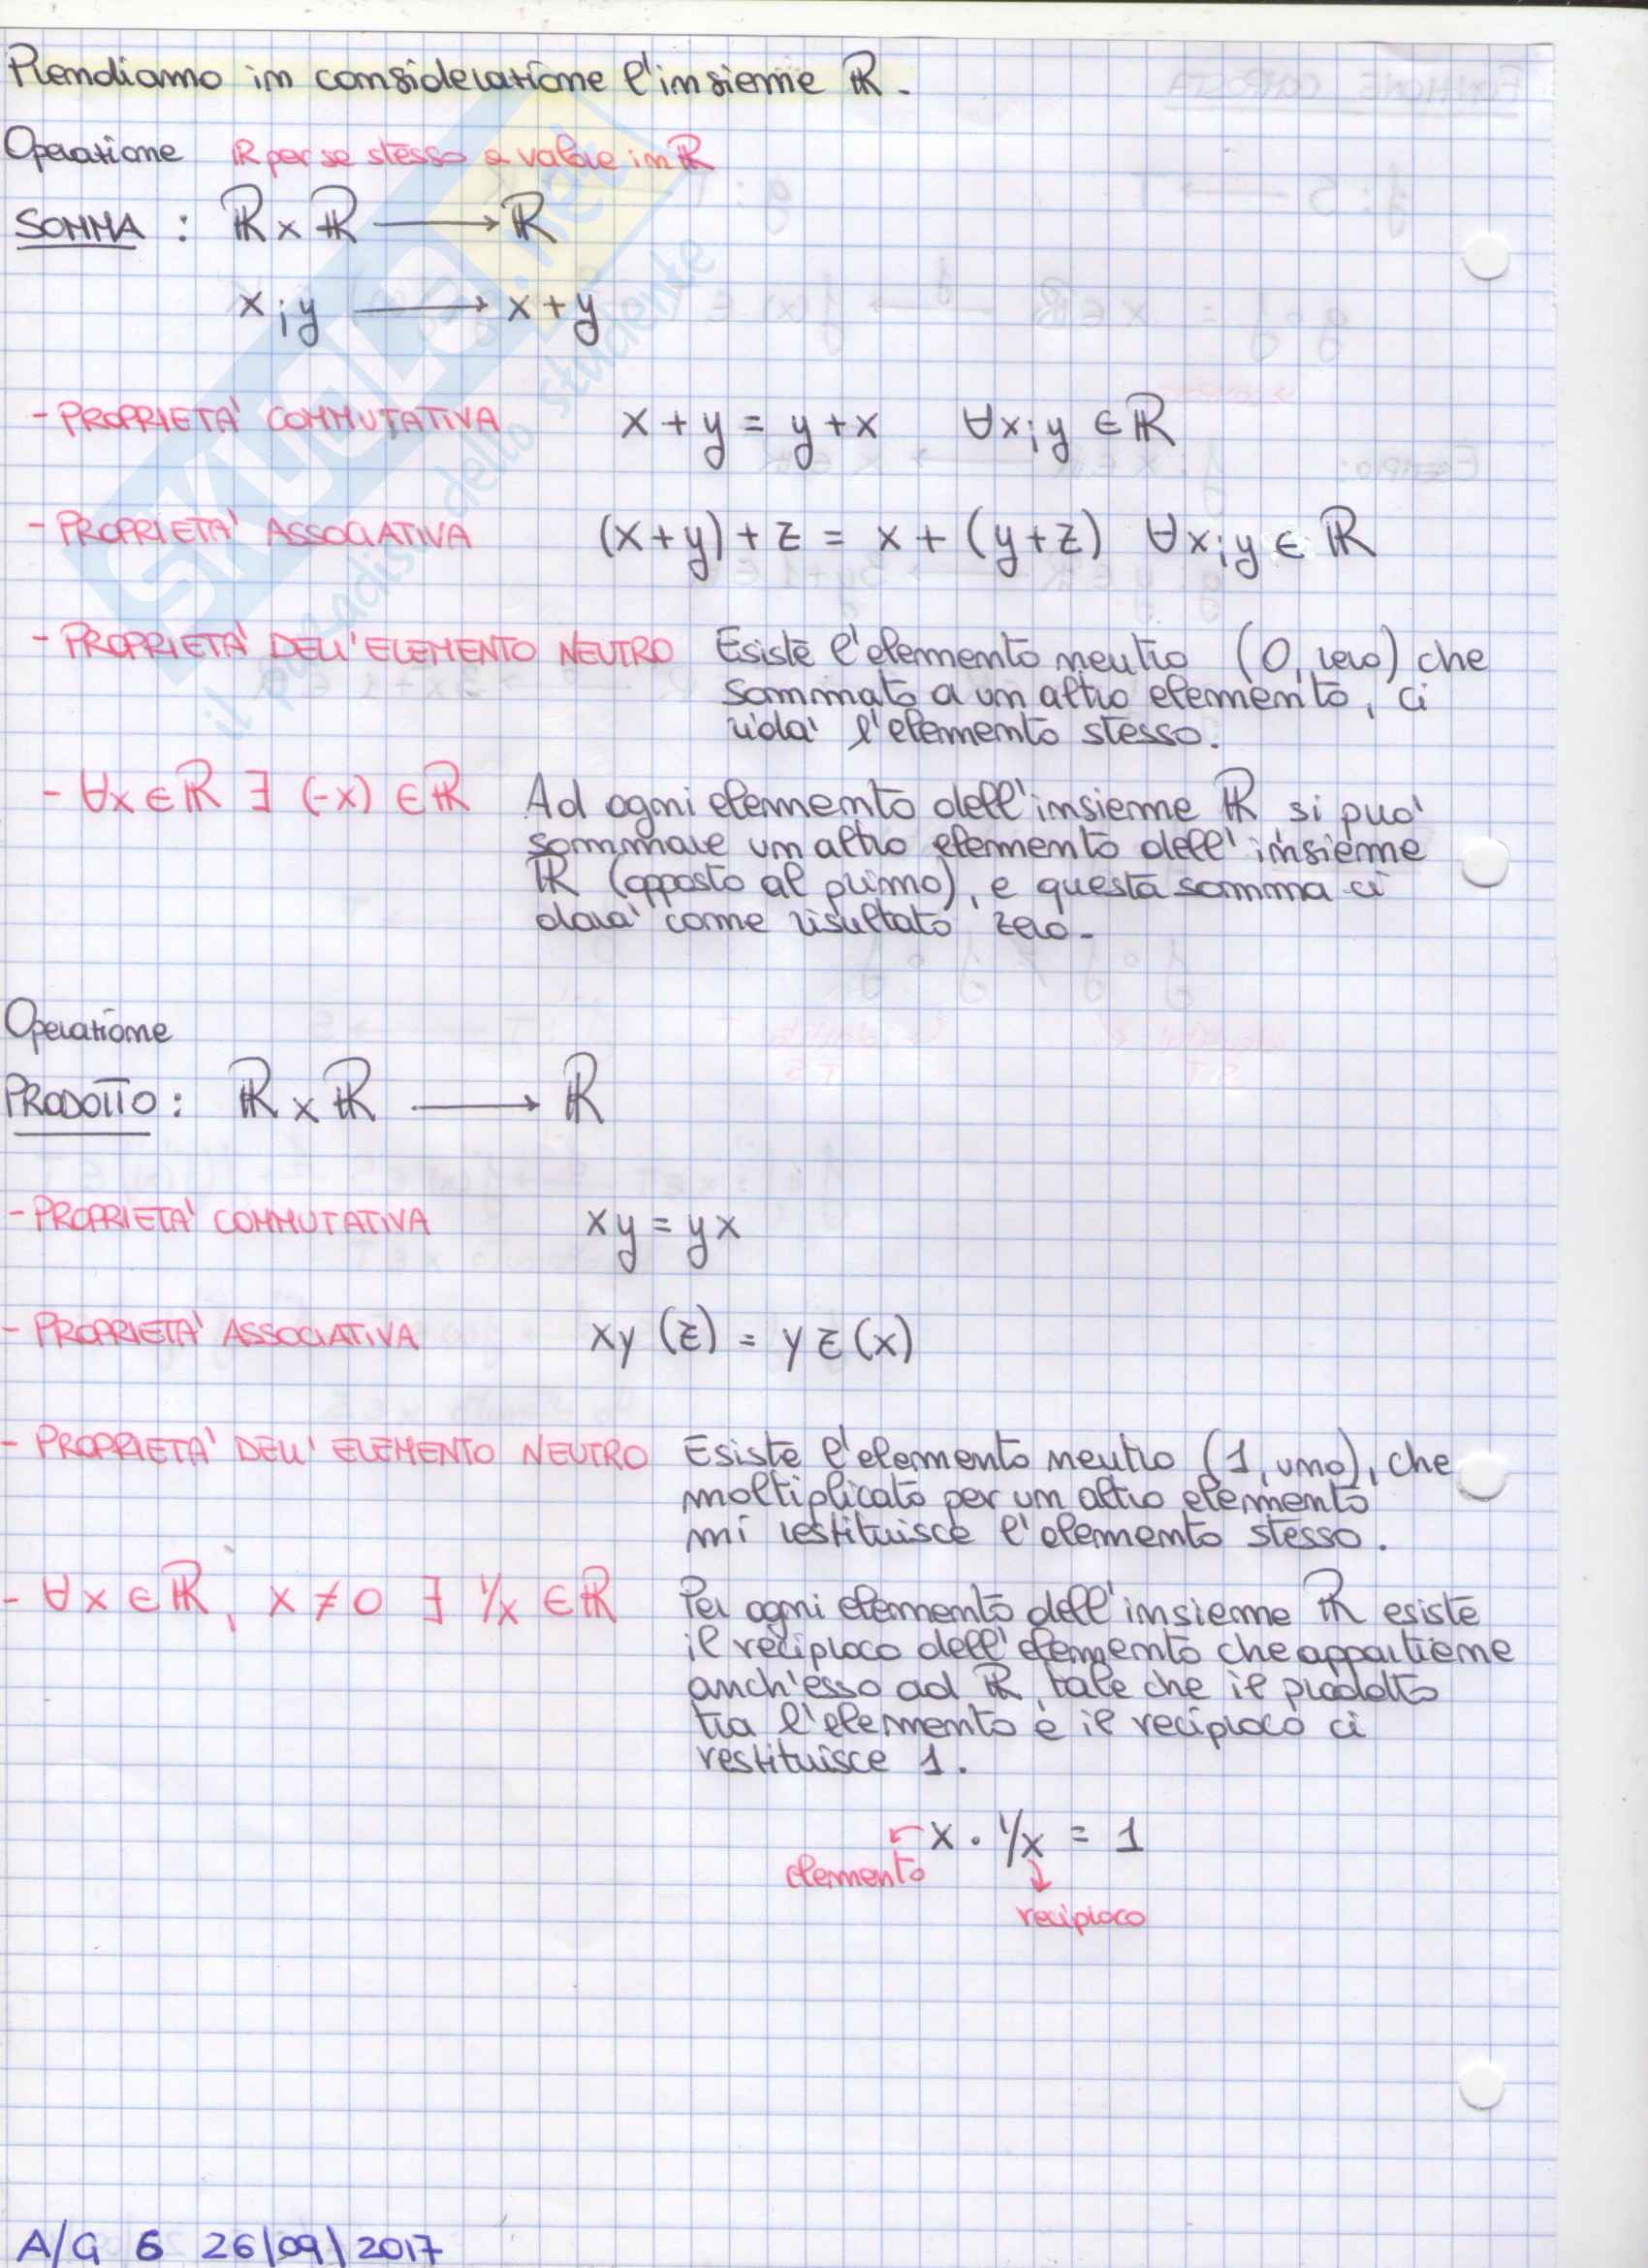 Prendiamo in considerazione l'insieme ℝ.
Operazione ℝ per se stesso a valore in ℝ
SOMMA : ℝ x ℝ ⟶ ℝ
x;y ⟶ x+y
- PROPRIETA' COMMUTATIVA x + y = y + x ∀x;y ∈ ℝ
- PROPRIETA' ASSOCIATIVA (x+y) + z = x + (y+z) ∀x;y ∈ ℝ
- PROPRIETA' DELL'ELEMENTO NEUTRO Esiste l'elemento neutro (0, zero) che
sommato a un altro elemento, ci
rida' l'elemento stesso.
- ∀x ∈ ℝ ∃ (-x) ∈ ℝ Ad ogni elemento dell'insieme ℝ si puo'
sommare un altro elemento dell'insieme
ℝ (opposto al primo), e questa somma ci
dara' come risultato zero.
Operazione
PRODOTTO : ℝ x ℝ ⟶ ℝ
- PROPRIETA' COMMUTATIVA xy = yx
- PROPRIETA' ASSOCIATIVA xy (z) = yz(x)
- PROPRIETA' DELL'ELEMENTO NEUTRO Esiste l'elemento neutro (1, uno), che
moltiplicato per un altro elemento
mi restituisce l'elemento stesso.
- ∀x ∈ ℝ, x ≠ 0 ∃ 1/x ∈ ℝ Per ogni elemento dell'insieme ℝ esiste
il reciproco dell'elemento che appartiene
anch'esso ad ℝ, tale che il prodotto
tra l'elemento e il reciproco ci
restituisce 1.
x · 1/x = 1
elemento
reciproco
A/G 6 26/09/2017
SKUOLA.net
il paradiso dello studente